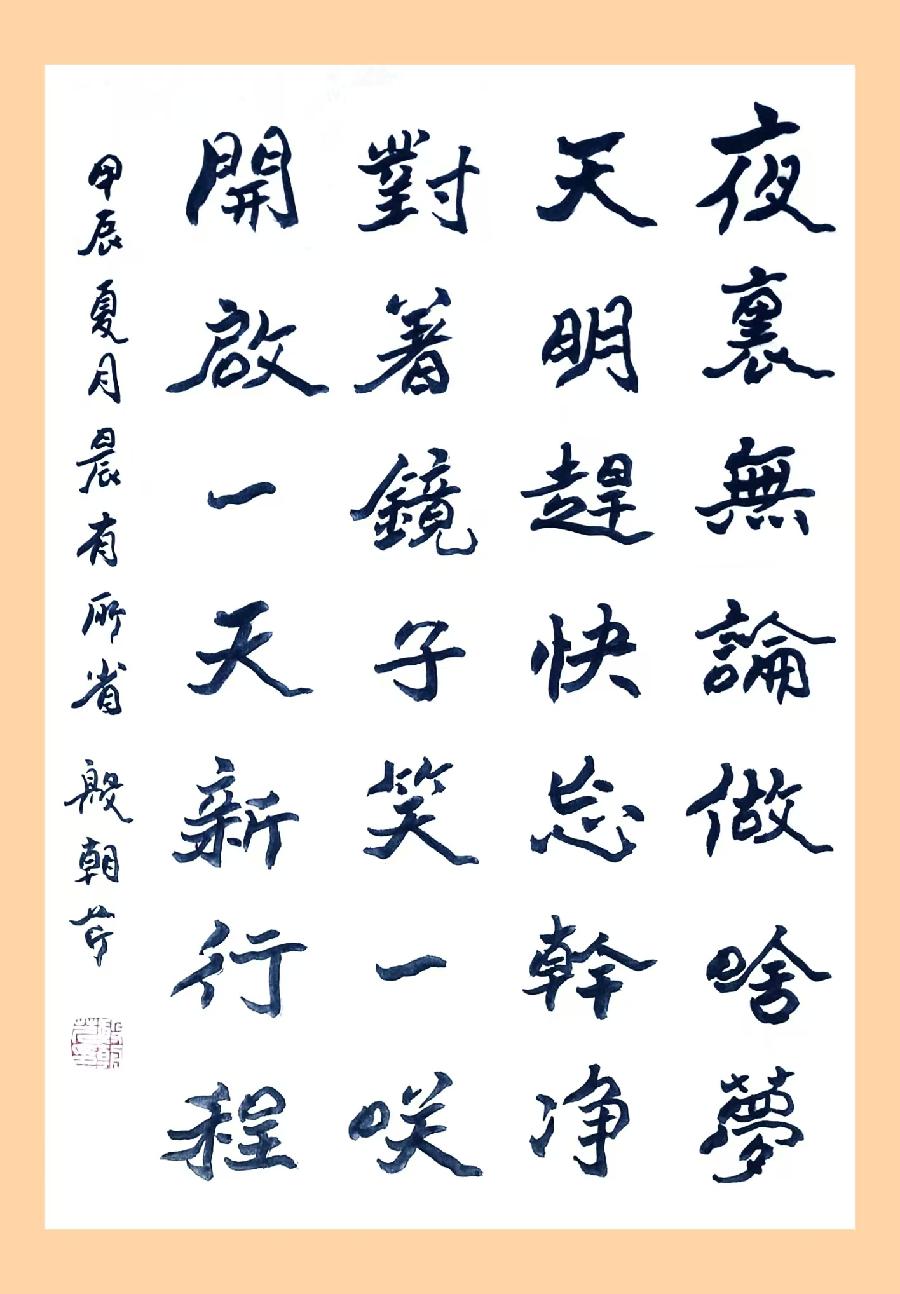 夜裏無論做啥夢
天明趕快忘幹净
對着鏡子笑一咲
開啟一天新行程
甲辰夏月晨有所省 殷朝芹